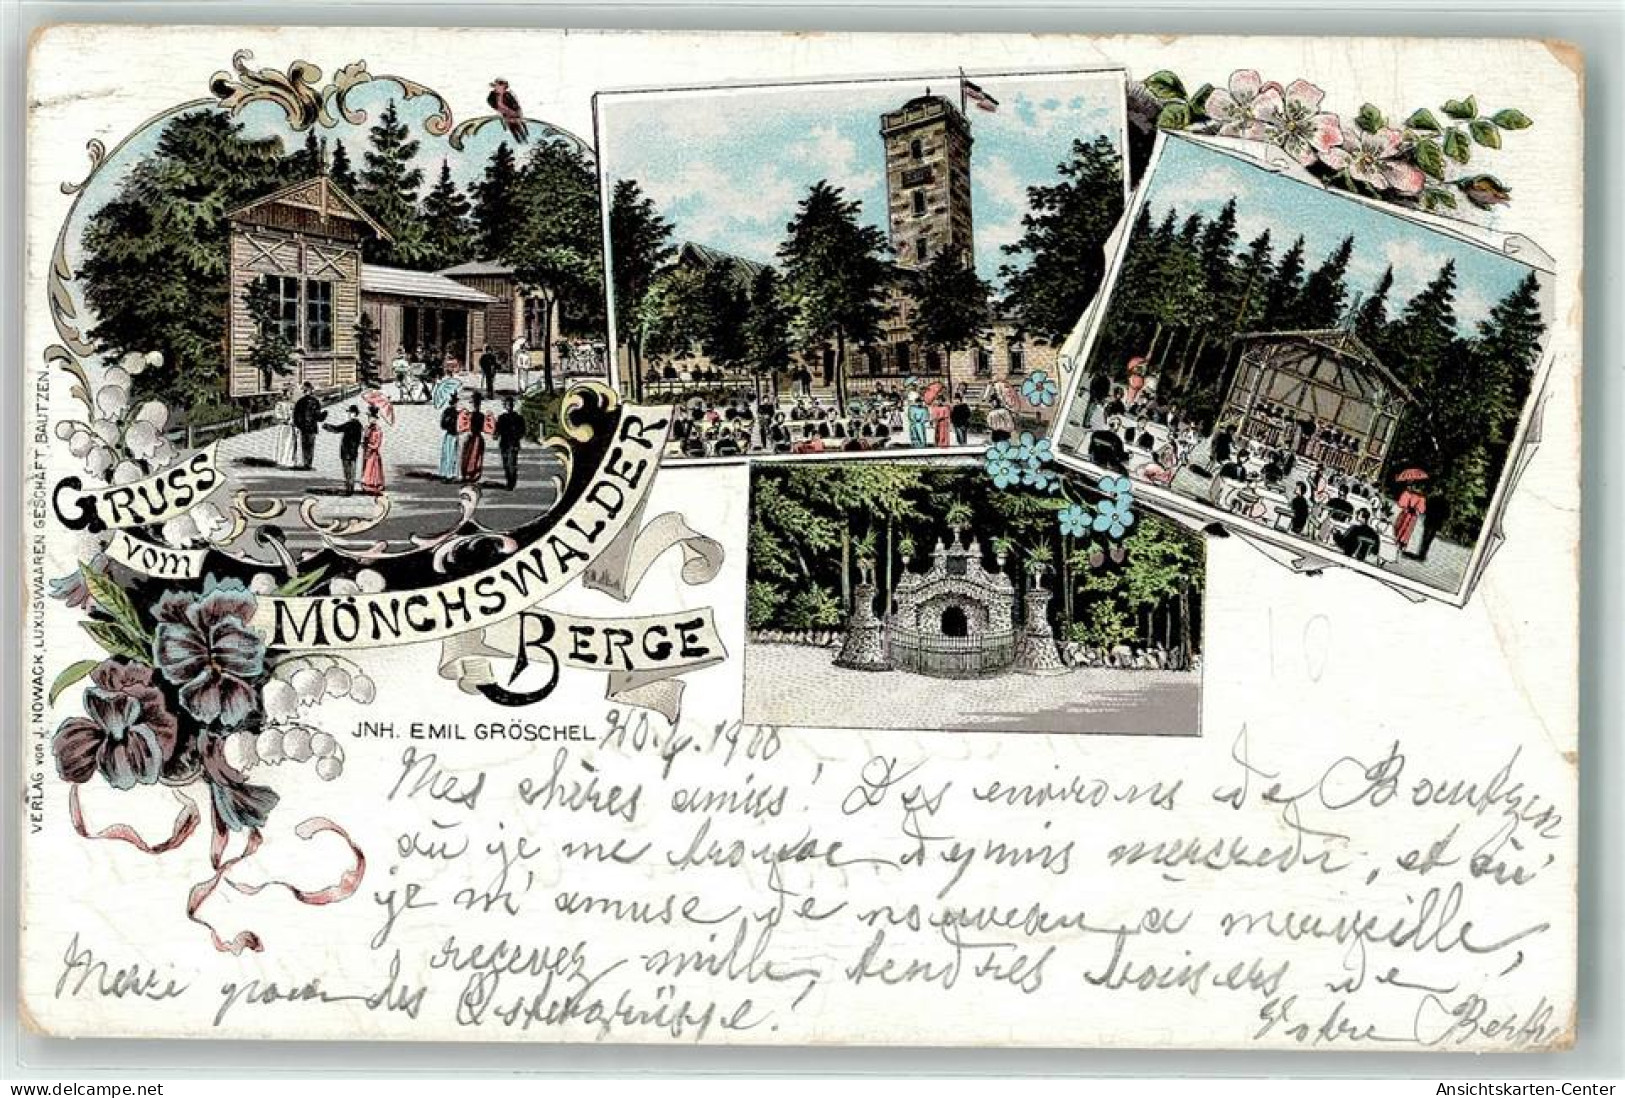 GRUSS
vom
MÖNCHSWALDER
BERGE
JNH. EMIL GRÖSCHEL
VERLAG von J. NOWACK, LUXUSWAAREN GESCHÄFT, BAUTZEN.
20. 4. 1900
Mes chères amies! Des environs de Bautzen
où je me trouve depuis mercredi, et où
je m'amuse de nouveau à merveille,
recevez mille tendres baisers de
Votre Berthe
Merci pour les Ostergrüsse!
10
Ansichtskarten-Center